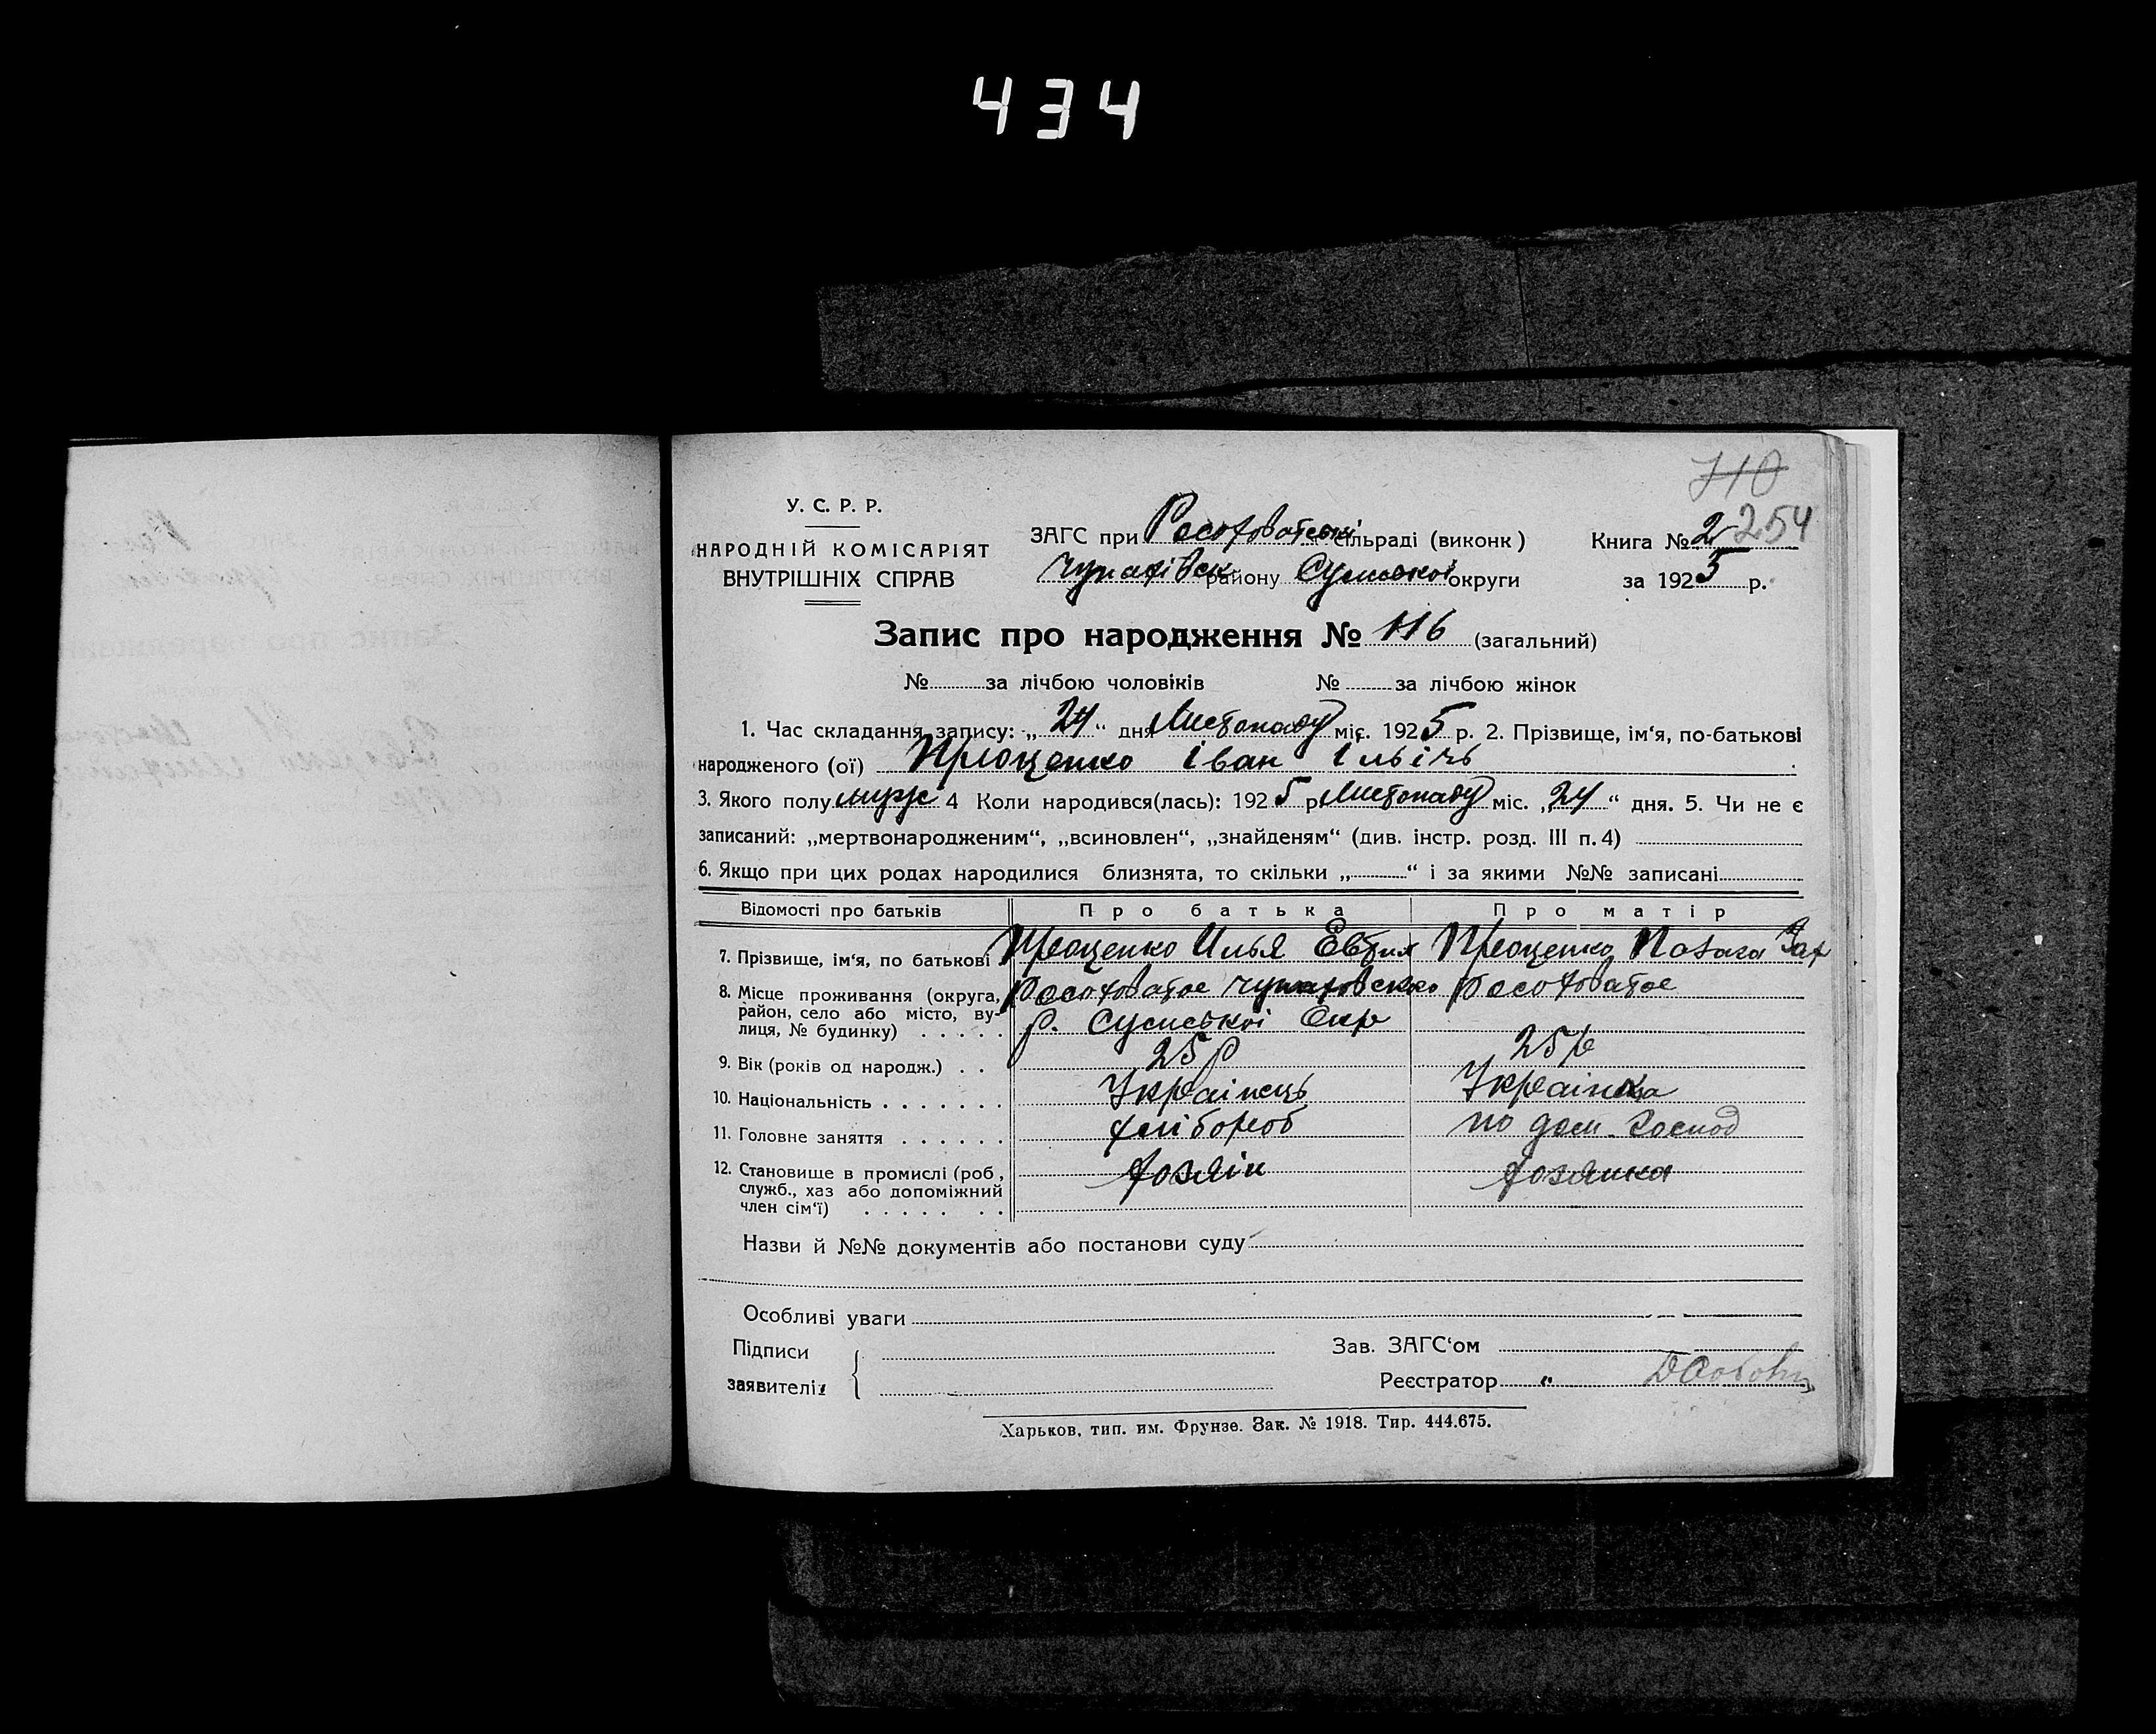 434
710
254
У. С. Р. Р.
НАРОДНІЙ КОМІСАРІЯТ
ВНУТРІШНІХ СПРАВ
ЗАГС при Росоховатські сільраді (виконк)
Чупахівск району Сумської округи
Книга № 2
за 1925 р.
Запис про народження № 116 (загальний)
№ за лічбою чоловіків № за лічбою жінок
1. Час складання запису: „24“ дня Листопаду міс. 1925 р. 2. Прізвище, ім'я, по-батькові
народженого (ої) Проценко Іван Ільічь
3. Якого полу муж 4 Коли народився(лась): 1925 р Листопаду міс. „24“ дня. 5. Чи не є
записаний: „мертвонародженим“, „всиновлен“, „знайденям“ (див. інстр. розд. III п. 4)
6. Якщо при цих родах народилися близнята, то скільки „ “ і за якими №№ записані
Відомості про батьків Про батька Про матір
7. Прізвище, ім'я, по батькові Проценко Илья Проценко Зах
8. Місце проживання (округа, район, село або місто, вулиця, № будинку) Росоховатое Чупаховсько Росоховатое
р. Сумської Окр
9. Вік (років од народж.) 25 р 25 р
10. Національність Українець Українка
11. Головне заняття хлібороб по дом. господ
12. Становище в промислі (роб, служб., хаз або допоміжний член сім'ї) Хозяін Хозяйка
Назви й №№ документів або постанови суду
Особливі уваги
Підписи
заявителі:
Зав. ЗАГС'ом
Реєстратор "
Харьков, тип. им. Фрунзе. Зак. № 1918. Тир. 444.675.